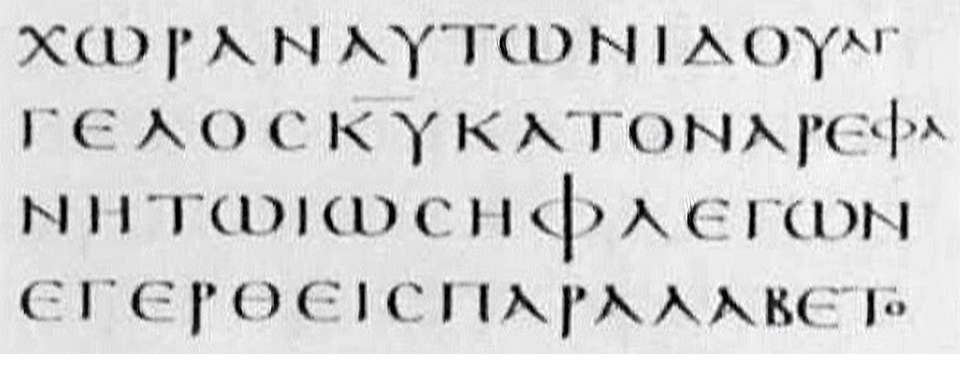 ΧΩΡΑΝΑΥΤΩΝΙΔΟΥΑΓ
ΓΕΛΟϹΚ̅Υ̅ΚΑΤΟΝΑΡΕΦΑ
ΝΗΤΩΙΩϹΗΦΛΕΓΩΝ
ΕΓΕΡΘΕΙϹΠΑΡΑΛΑΒΕΤΟ